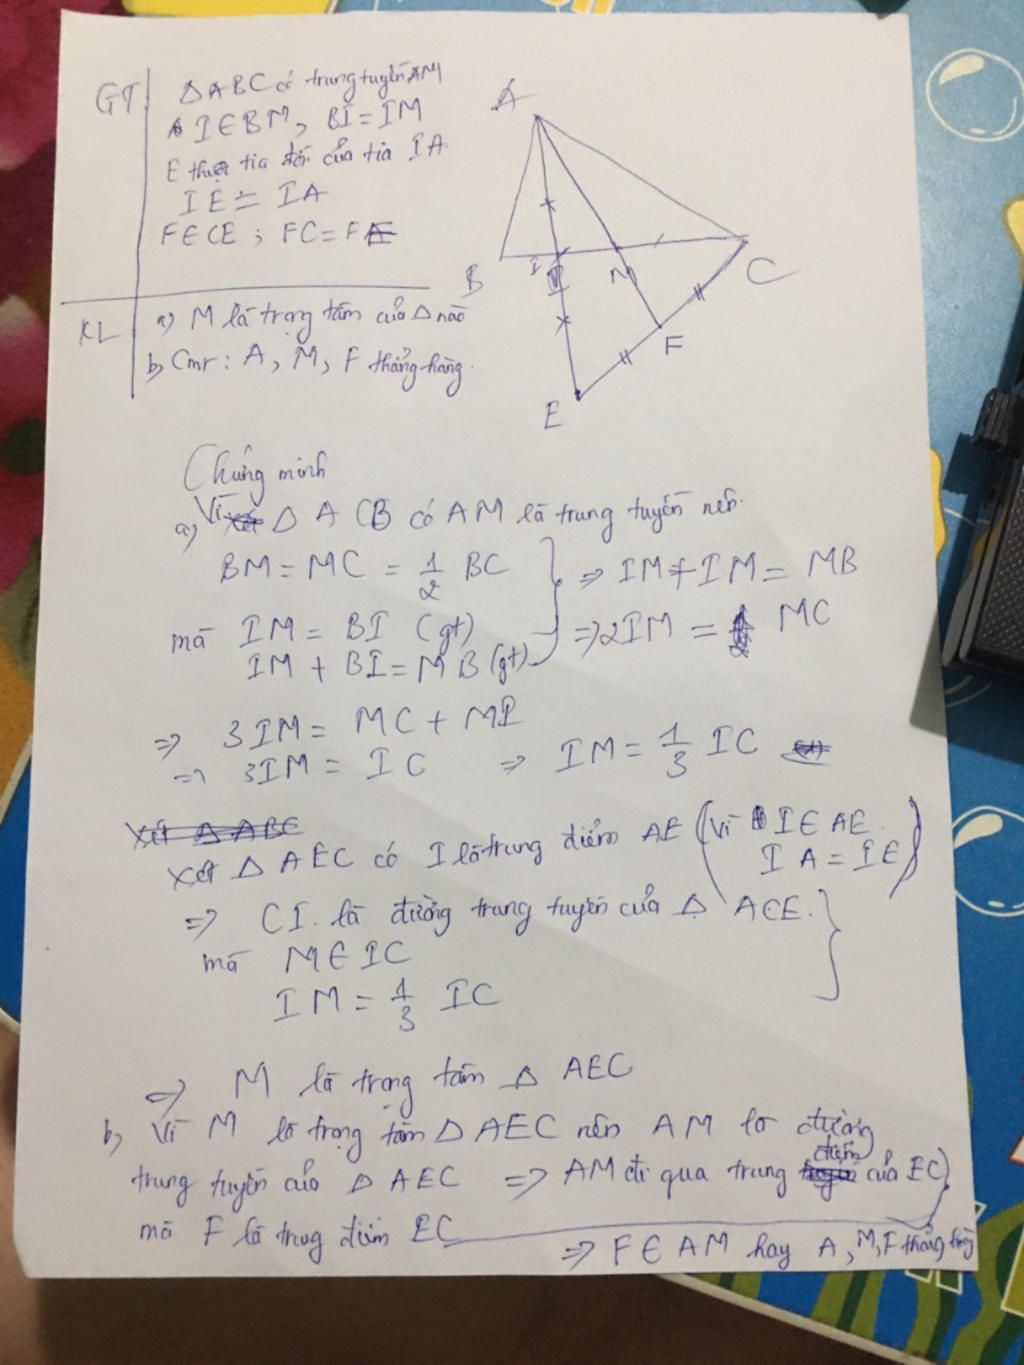 GT
ΔABC có trung tuyến AM
I∈BM, BI = IM
E thuộc tia đối của tia IA
IE = IA
F∈CE ; FC = FE
KL
a) M là trọng tâm của Δ nào
b, Cmr : A, M, F thẳng hàng.
A
B
I
M
C
F
E
Chứng minh
a, Vì Δ ACB có AM là trung tuyến nên
BM = MC = 1/2 BC
mà IM = BI (gt)
IM + BI = MB (gt)
⇒ IM + IM = MB
⇒ 2IM = MC
⇒ 3IM = MC + MI
⇒ 3IM = IC ⇒ IM = 1/3 IC
Xét Δ AEC có I là trung điểm AE (Vì I∈AE
IA = IE)
⇒ CI là đường trung tuyến của Δ ACE.
mà M∈IC
IM = 1/3 IC
⇒ M là trọng tâm Δ AEC
b, Vì M là trọng tâm Δ AEC nên AM là đường
trung tuyến của Δ AEC ⇒ AM đi qua trung điểm của EC
mà F là trung điểm EC
⇒ F∈AM hay A, M, F thẳng hàng